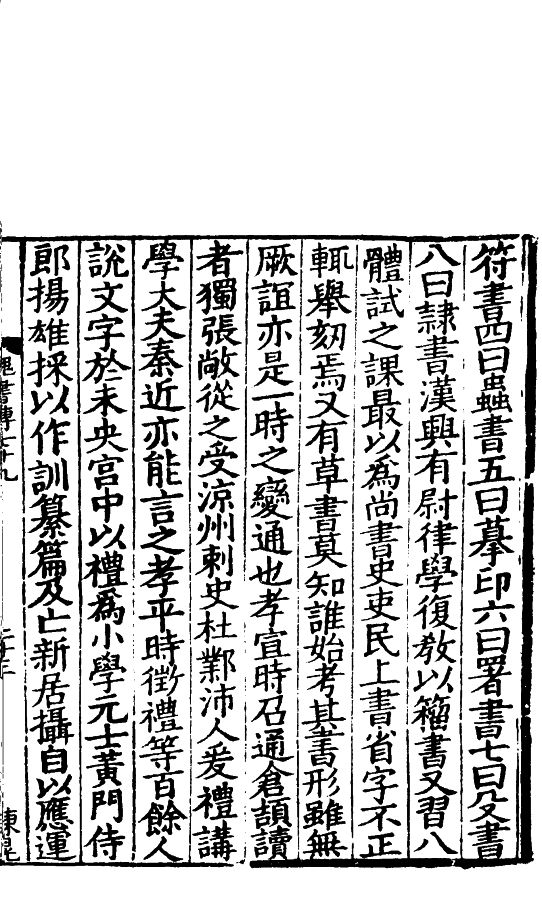 符書四曰蟲書五曰摹印六曰署書七曰殳書
八曰隷書漢興有尉律學復教以籀書又習八
體試之課最以爲尚書史吏民上書省字不正
輒舉劾焉又有草書莫知誰始考其書形雖無
厥誼亦是一時之變通也孝宣時召通倉頡讀
者獨張敞從之受涼州刺史杜鄴沛人爰禮講
學大夫秦近亦能言之孝平時徵禮等百餘人
說文字於未央宮中以禮爲小學元士黃門侍
郎揚雄採以作訓纂篇及亡新居攝自以應運
魏書傳七十九
二十三